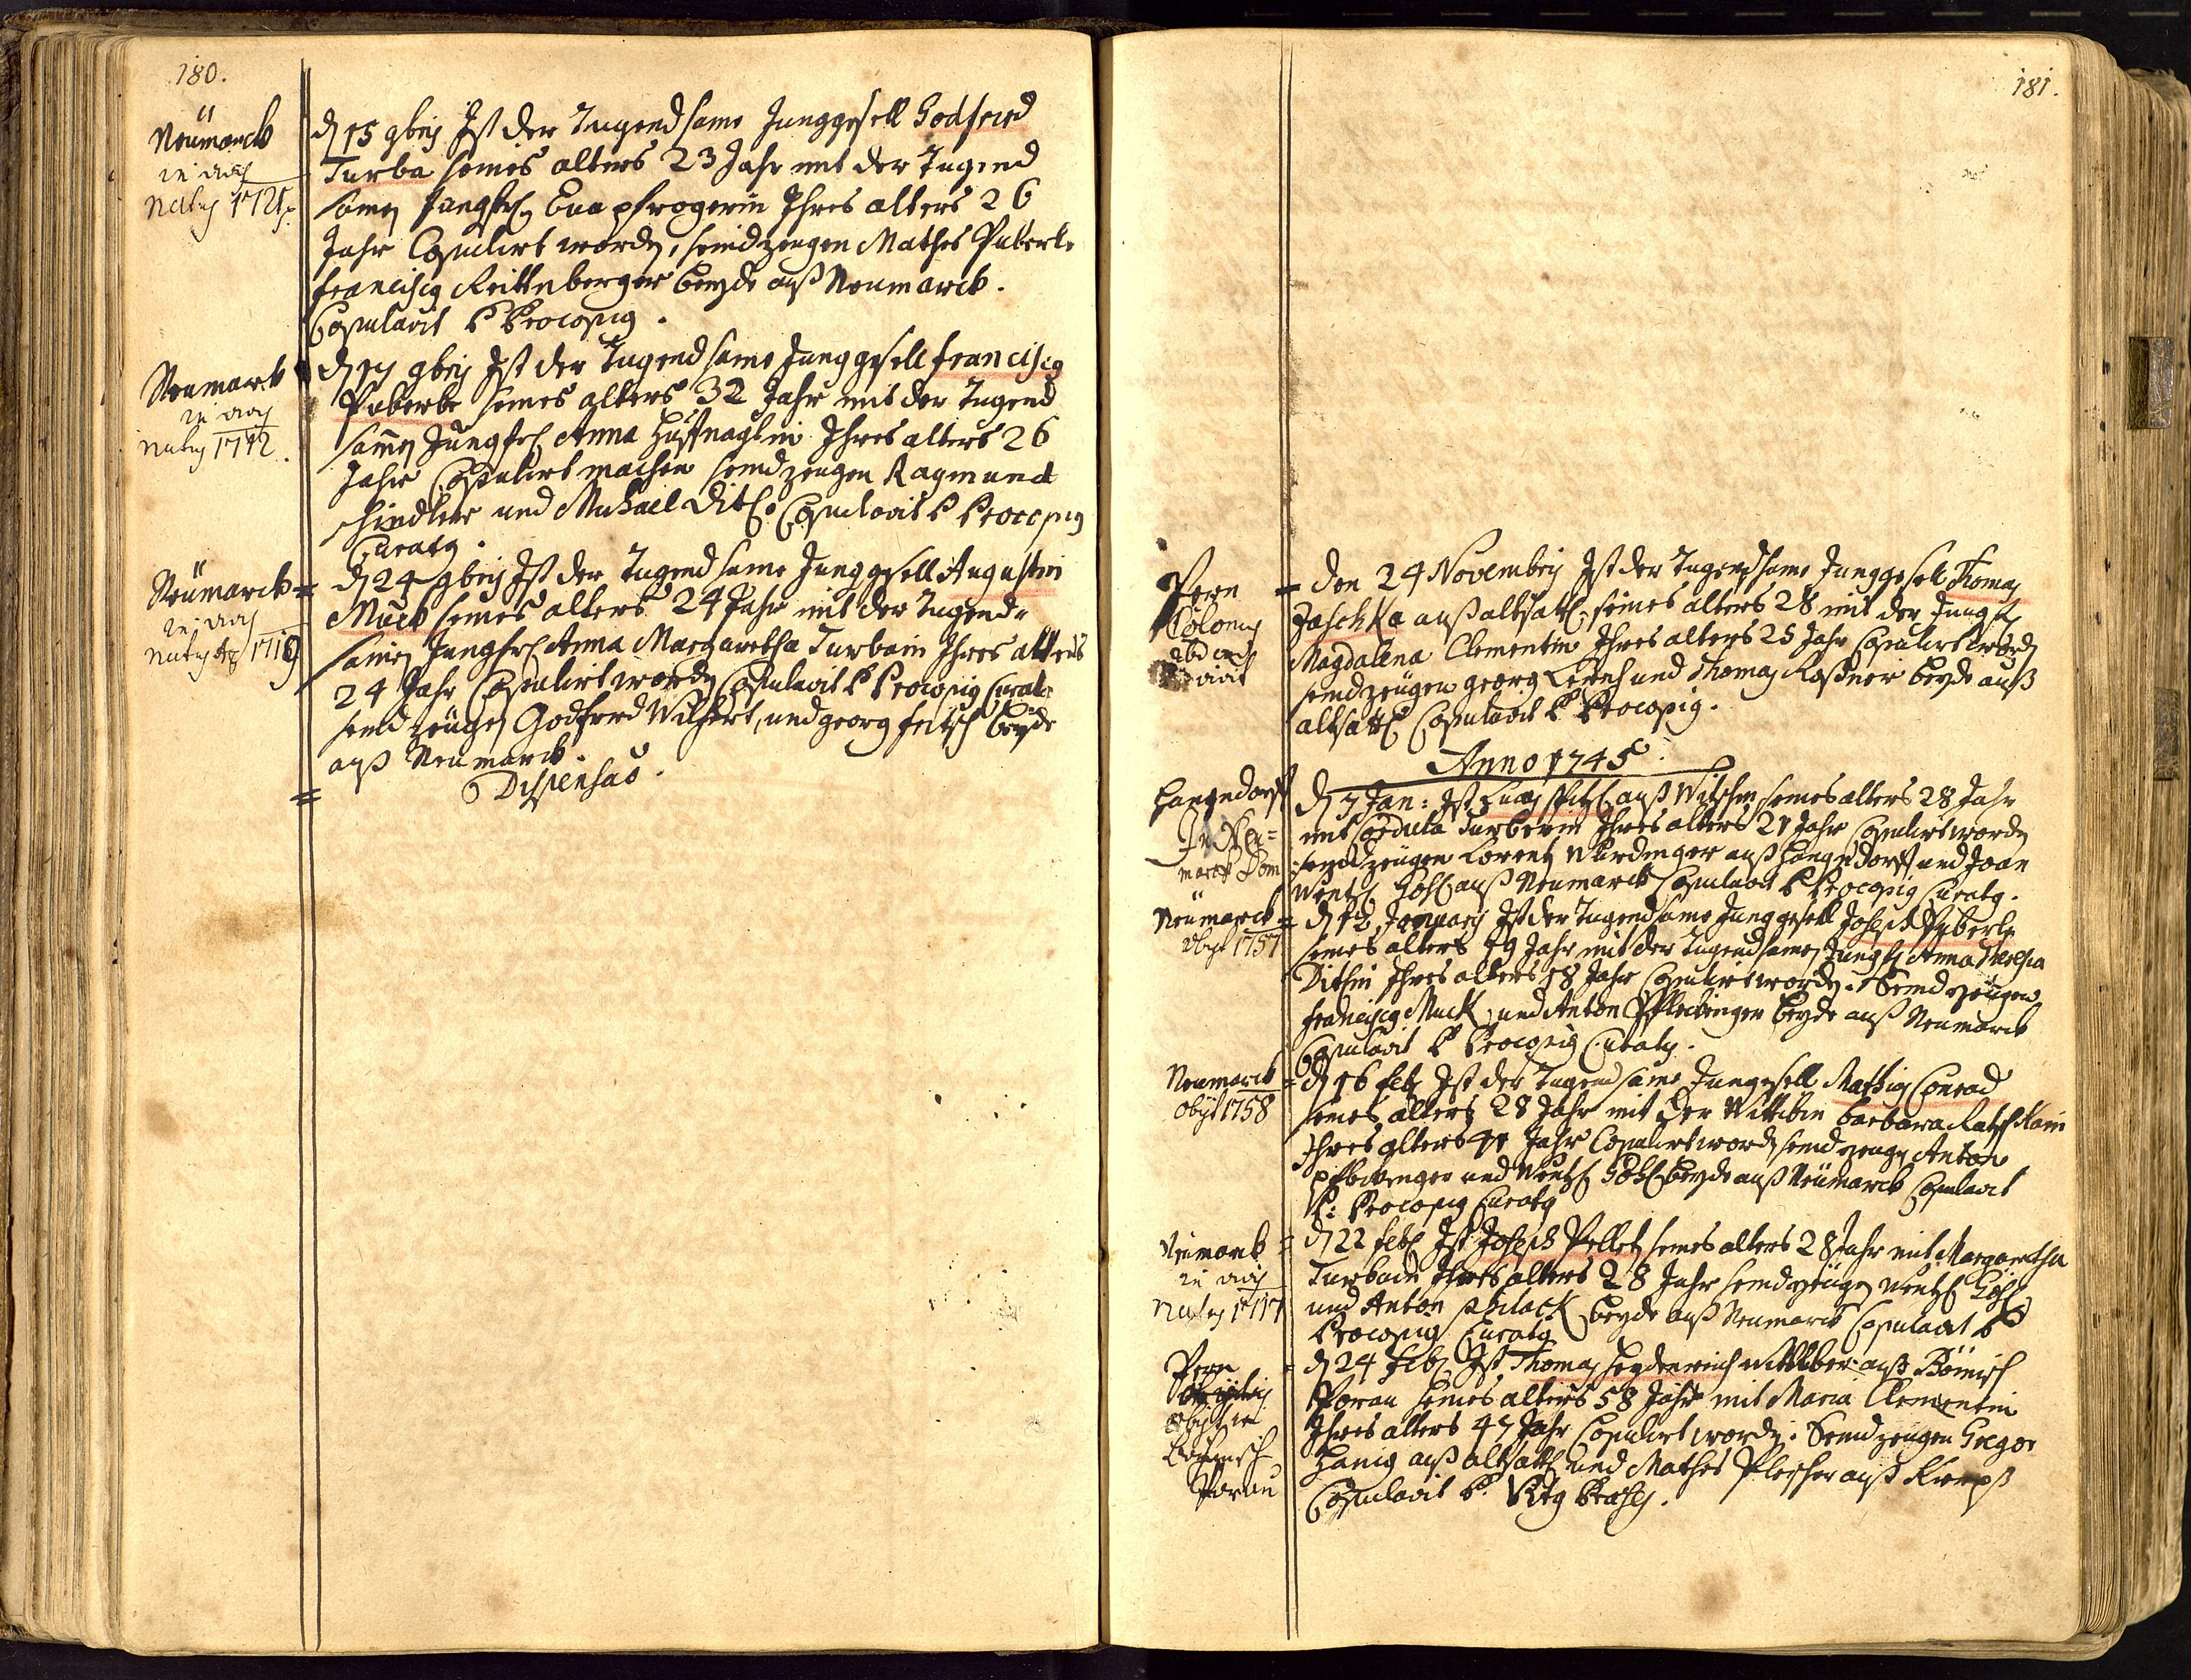 180.
Neümarck
Natus 1721.
d 15 9bris Ist der Tugendsame Junggesell Godfried
Turba seines alters 23 Jahr mit der Tugend
samen Jungfr. Eva pfrogerin Ihres alters 26
Jahr Copulirt worden, seind zeugen Mathes Puberle
Franciscus Reittenberger beyde auß Neumarck.
Copulavit P Procopius.
Neumarck
Natus 1712.
d 9bris Ist der Tugendsame Junggesell Franciscus
Puberle seines alters 32 Jahr mit der Tugend
samen Jungfr. Anna Huffnaglin Ihres alters 26
Jahr Copulirt seind zeugen Raymund
schindler und Michael Ditl. Copulavit P Procopius
Curatus.
Neümarck
Natus 1719
d 24 9bris Ist der Tugendsame Junggesell Augustin
Muck seines alters 24 Jahr mit der Tugend-
samen Jungfr. Anna Margaretha Turbain Ihres alters
24 Jahr Copulirt worden Copulavit P Procopius Curatus
seind zeugen Godfried Wilfert, und georg fritsch beyde
auß Neumarck.
Dispensas.
181.
Pern
den 24 Novembris Ist der Tugendsame Junggesell Thomas
Jaschka auß altsatl. seines alters 28 mit der Jungfr
Magdalena Clementin Ihres alters 25 Jahr Copulirt word
seind zeügen georg Lerch und Thomas Roßner beyde auß
altsattl Copulavit P Procopius.
Anno 1745
Hangendorff
d 7 Jan: Ist auß Witschin seines alters 28 Jahr
mit Cordula Turberin Ihres alters 21 Jahr Copulirt worden
seynd zeügen Lorentz Würdinger auß Hangendorff und Joan
Wentzl Göhl auß Neumarck Copulavit P Procopius Curatus.
Neümarck
obyt 1757
d 12 Januarij Ist der Tugendsame Junggesell Joseph Puberle
seines alters 19 Jahr mit der Tugendsamen Jungfr Anna Theresia
Ditlin Ihres alters 18 Jahr Copulirt worden. Seind zeügen
Franciscus Muck, und Anton Pfleibinger beyde auß Neumarck
Copulavit P Procopius Curatus.
Neumarck
obyt 1758
d 16 feb Ist der Tugendsame Jungesell Mathias Conrad
seines alters 28 Jahr mit der Wittibin Barbara
Ihres alters 41 Jahr Copulirt word seind zeugen Anton
und Wentzl Göhl beyde auß Neümarck Copulavit
P: Procopius Curatus
Neümarck
Natus 1717
d 22 feb Ist Joseph Pelletz seines alters 28 Jahr mit Margaretha
Turbain Ihres alters 28 Jahr seind zeügen Wentzl Göhl
und Anton beyde auß Neumarck Copulavit P
Procopius Curatus
Pern
obyt in
Böhmisch
Poran
d 24 feb Ist Thomas Heydenreich Wittiber auß Bömisch
Poran seines alters 58 Jahr mit Maria Clementin
Ihres alters 47 Jahr Copulirt worden. Seind zeugen Gregor
Hanig auß altsattl und Mathes Plescher auß
Copulavit P.